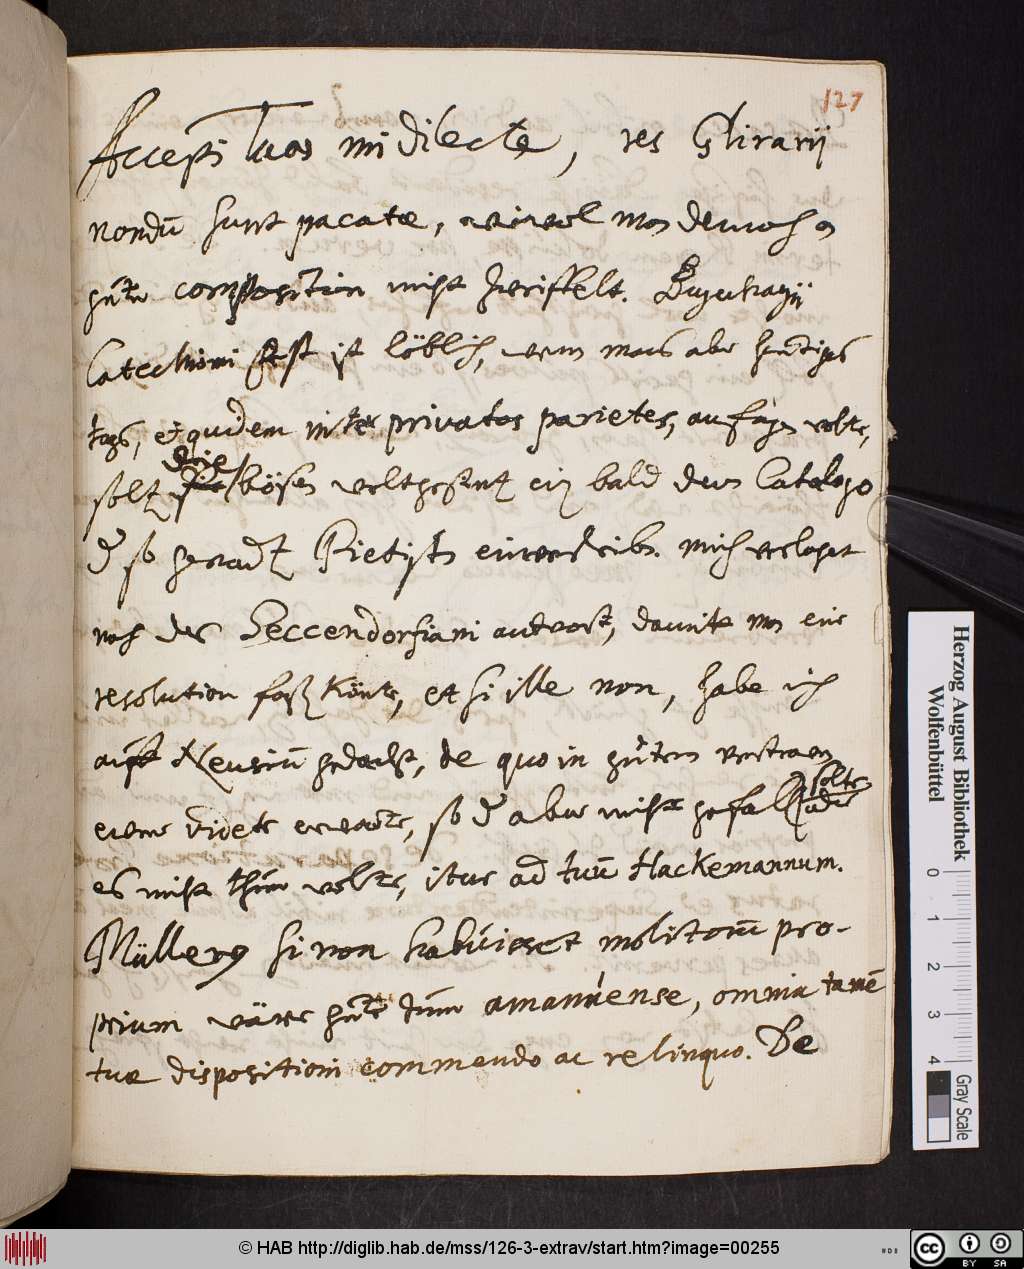 127
Accepi tuas mi dilecte, res Glirarii
nondū sunt pacatæ, wiewol man dennoch an
guter composition nicht zweiffelt. Bugenhagii
Catechismi fest ist löblich, wenn mans aber heutiges
tags, et quidem inter privatos parietes, anfangen wolte,
solt die bösen weltgesint ein bald dem Catalogo
d so genandt Pietisten einverleiben. mich verlanget
nach der Seccendorfiani antwort, damite man eine
resolution faßen könte, et si ille non, habe ich
auff Neusium gedacht, de quo in gutem vertrauen
erwarte, so d aber nicht gefall solte
es nicht thun wolte, itur ad tuū Hackemannum.
Müllerus si non habuisset molitorem pro-
prium wäre gut zum amanuense, omnia tamē
tuæ dispositioni commendo ac relinquo. De
Herzog August Bibliothek
Wolfenbüttel
0 1 2 3 4
Gray Scale
© HAB http://diglib.hab.de/mss/126-3-extrav/start.htm?image=00255
cc BY SA